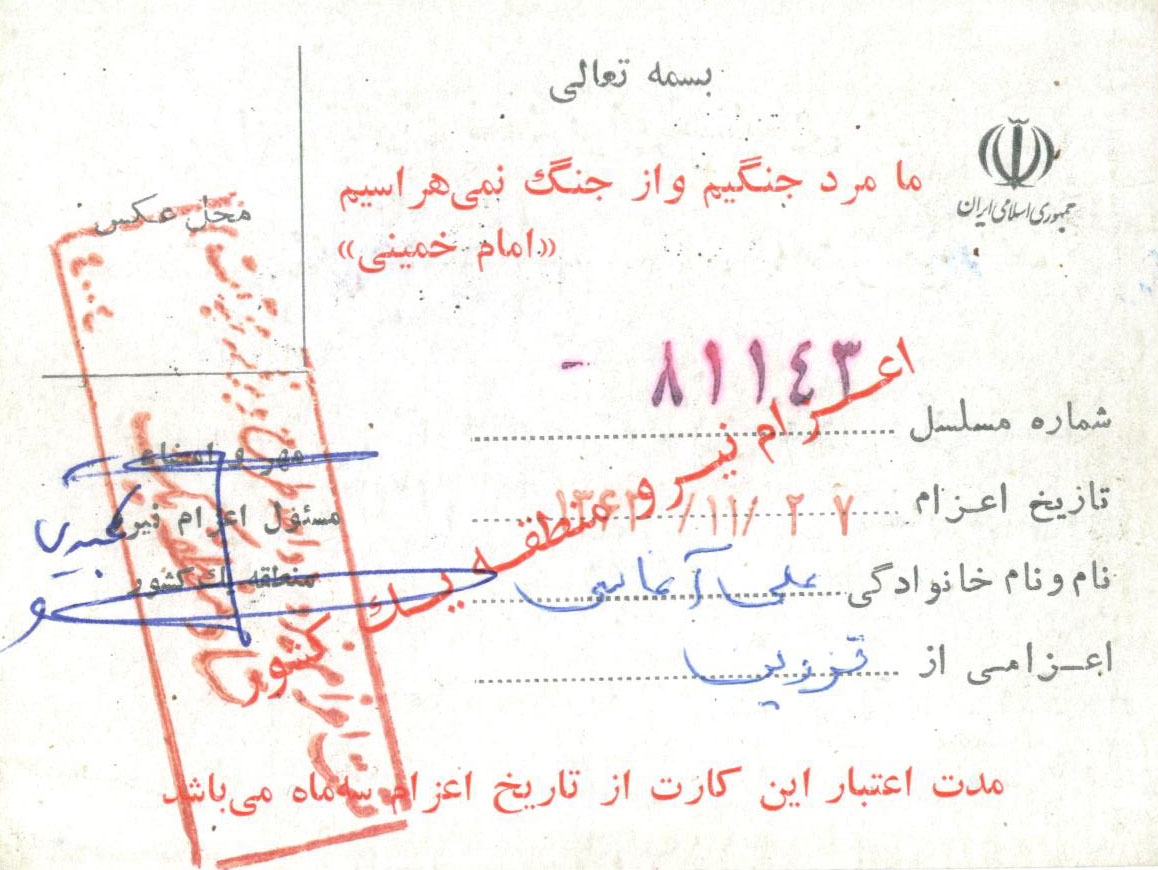 بسمه تعالی
جمهوری اسلامی ایران
ما مرد جنگیم و از جنگ نمی‌هراسیم
«امام خمینی»
محل عکس
شماره مسلسل ۸۱۱۴۳ -
تاریخ اعزام ۱۳۶۲/۱۱/۲۷
نام و نام خانوادگی علی
اعزامی از قزوین
مهر و امضاء
مسئول اعزام نیرو
منطقه یک کشور
اعزام نیرو منطقه یک کشور
مدت اعتبار این کارت از تاریخ اعزام سه ماه می‌باشد